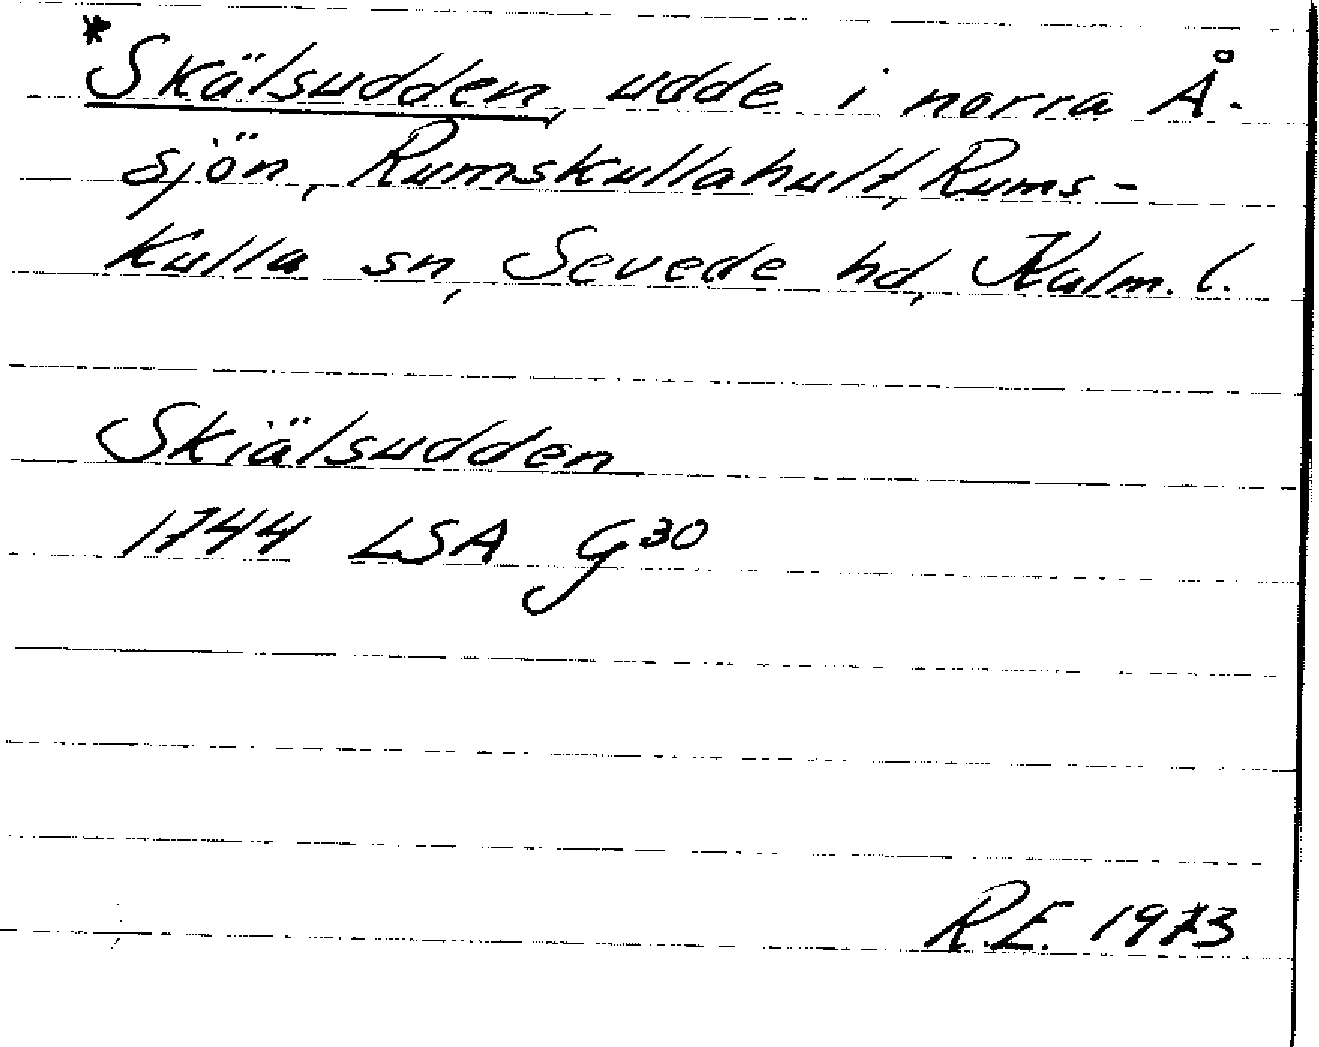 *Skälsudden, udde i norra Å-
sjön, Rumskullahult, Rums-
kulla sn, Sevede hd, Kalm. l.
Skiälsudden
1744 LSA G30
R.E. 1973